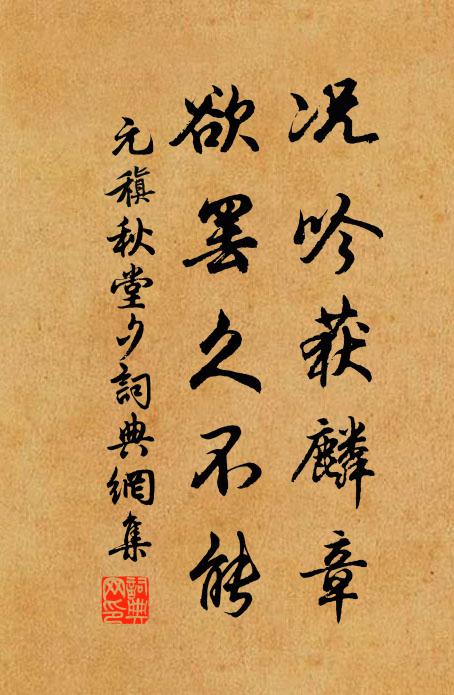 况吟获麟章
欲罢久不能
元稹秋堂夕詞典網集
詞典網印